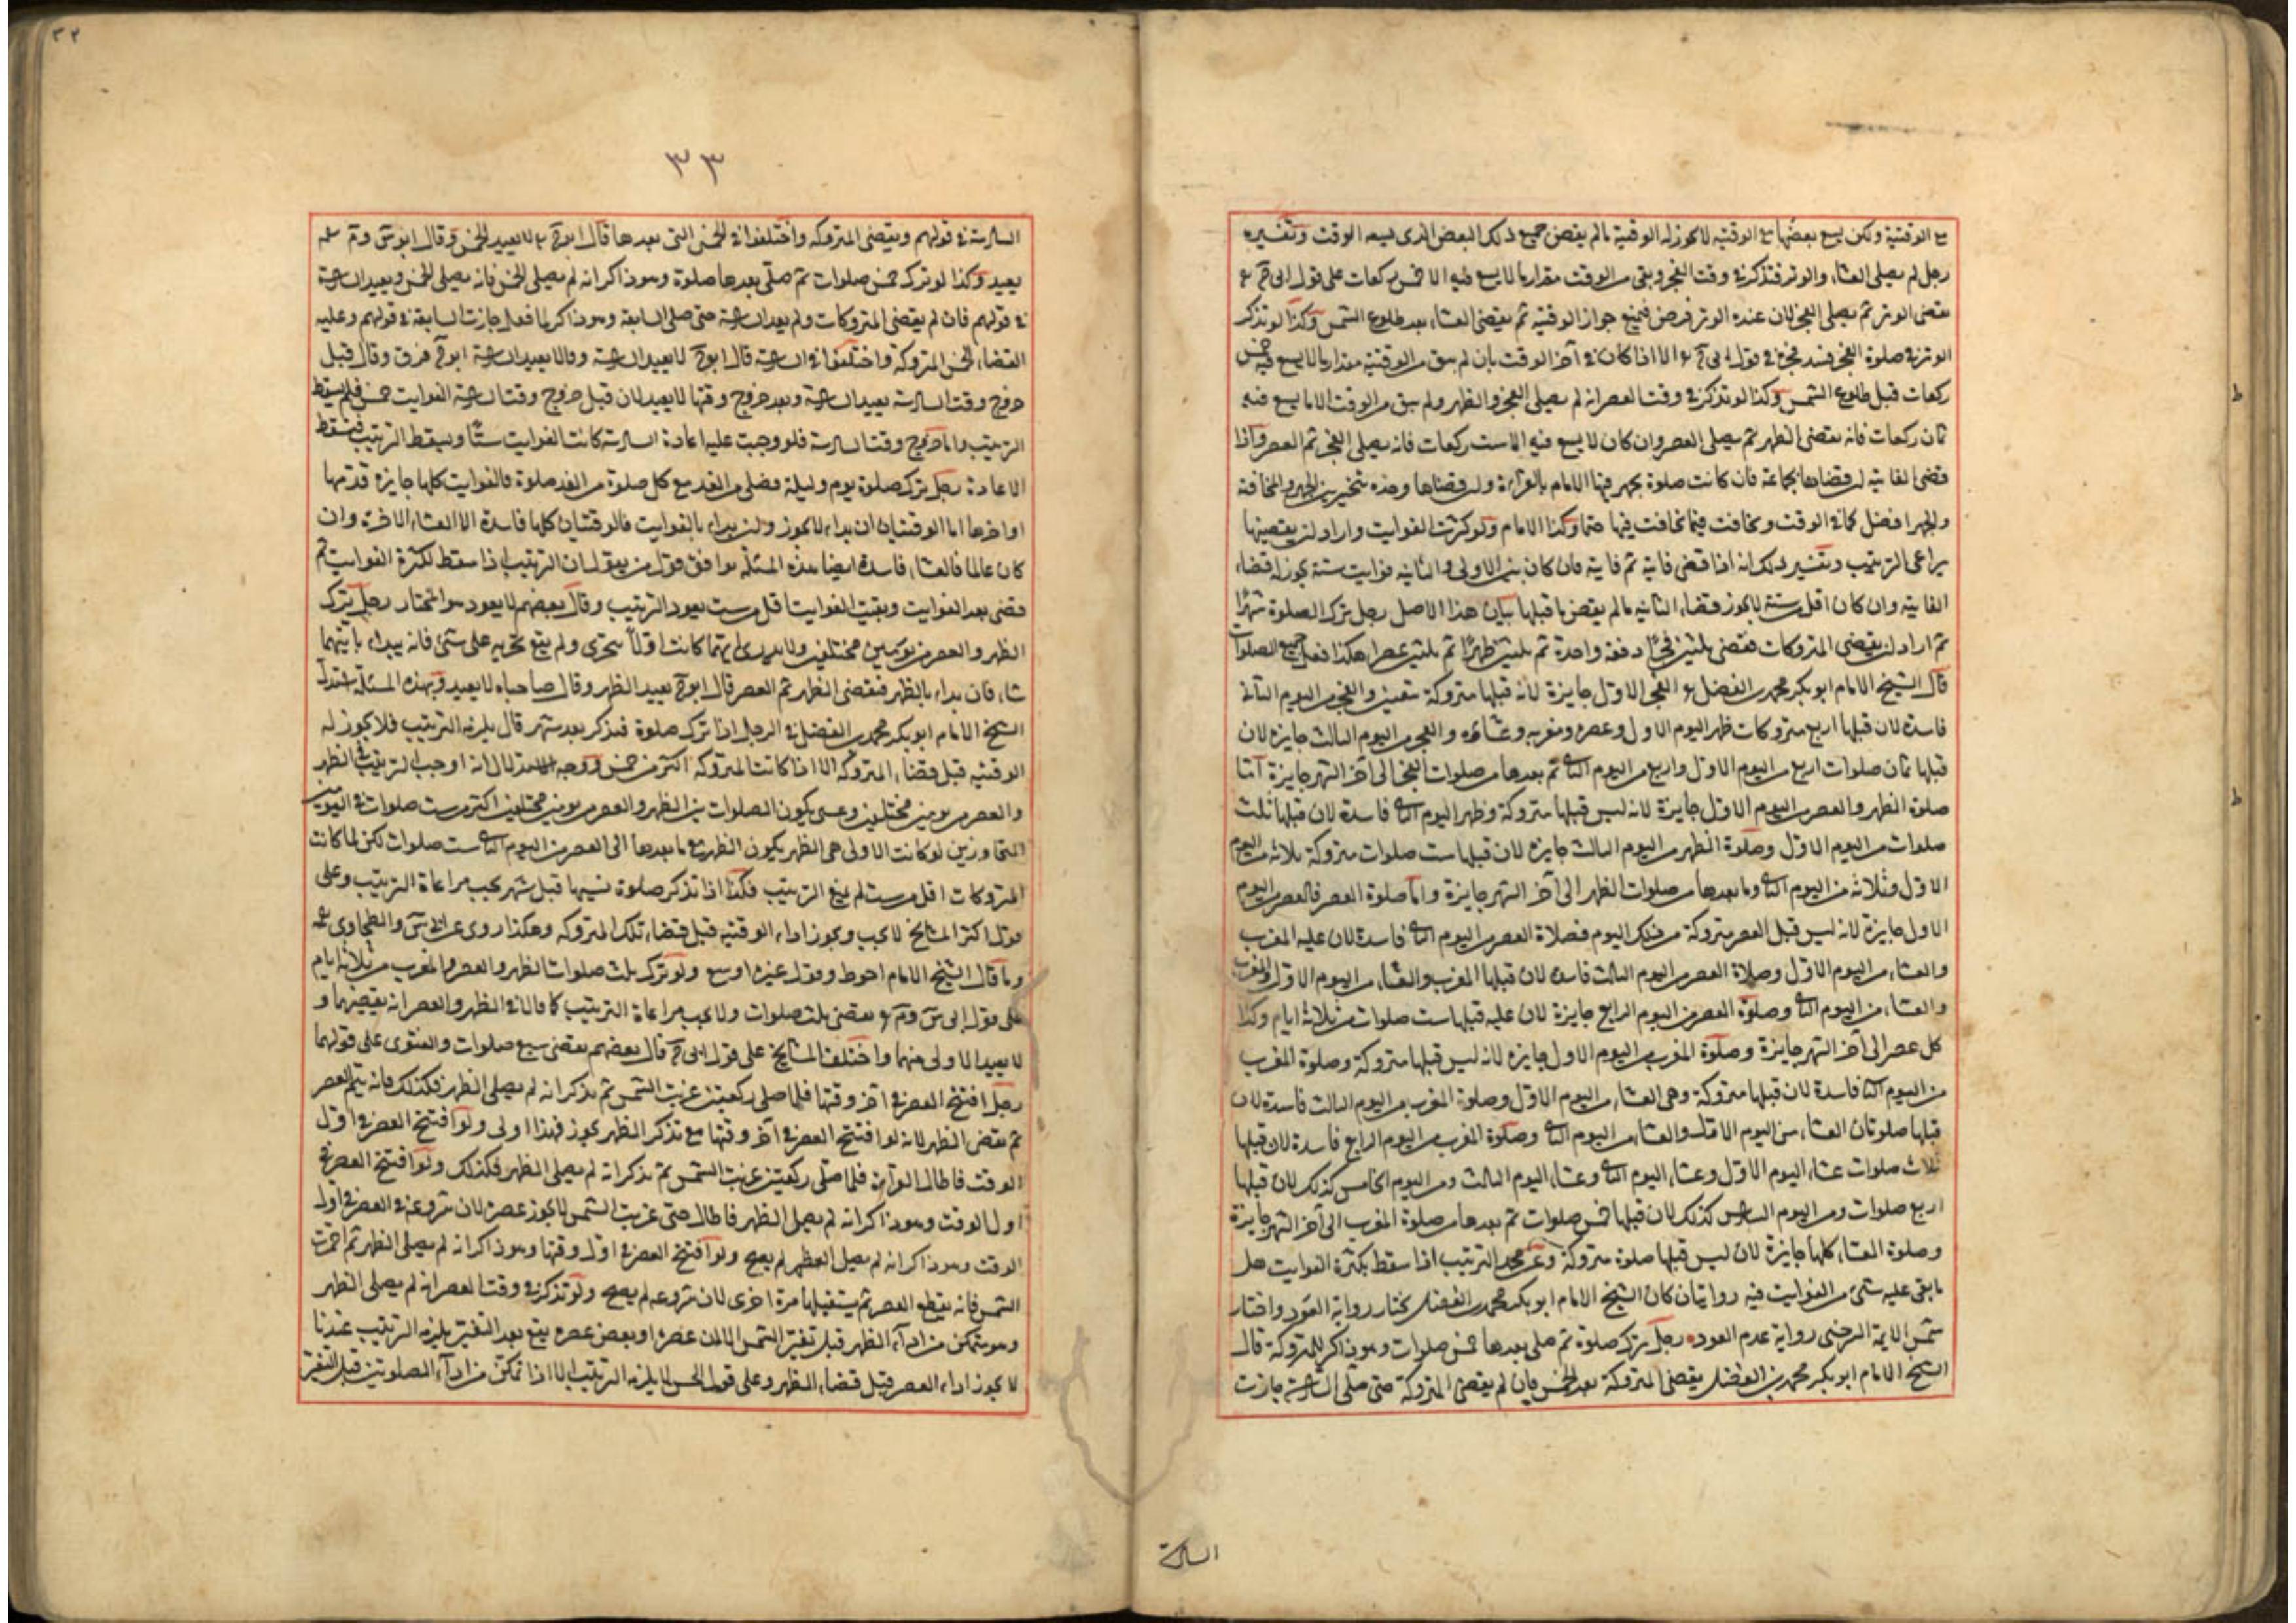 مع الوقتية ولكن يسع بعضها مع الوقتيه لا يجوز له الوقتية ما لم يقض جميع ذلك البعض الذى يسعه الوقت وتفسيره
رجل لم يصلى العشاء والوتر فتذكر فى وقت الفجر وبقى من الوقت مقدار ما لا يسع فيه الا خمس ركعات على قول ابى ح ع
يقضى الوتر ثم يصلى الفجر لان عنده الوتر فرض فيمنع جواز الوقتية ثم يقضى العشاء بعد طلوع الشمس وكذا لو تذكر
الوتر فى صلوة الفجر فسد فجره فى قول ابى ح ع الا اذا كان فى آخر الوقت بان لم يبق من الوقتية مقدار ما لا يسع فيه خمس
ركعات قبل طلوع الشمس وكذا لو تذكر فى وقت العصر انه لم يصلى الفجر والظهر ولم يبق من الوقت الا ما يسع فيه
ثمان ركعات فانه يقضى الظهر ثم يصلى العصر وان كان لا يسع فيه الا ست ركعات فانه يصلى الفجر ثم العصر واذا
قضى الفايتة ان قضاها بجماعة فان كانت صلوة يجهر فيها الامام بالقراءة وان قضاها وحده يتخير بين الجهر والمخافتة
والجهر افضل كما فى الوقت ويخافت فيما يخافت فيها حتما وكذا الامام ولو كثرت الفوايت واراد ان يقضيها
يراعى الترتيب وتفسير ذلك انه اذا قضى فاية ثم فاية فان كان بين الاولى والثانيه فوايت ستة يجوز له قضاء
الفايتة وان كان اقل من ستة لا يجوز قضاء الثانيه ما لم يقض ما قبلها بيان هذا الاصل رجل ترك الصلوة شهرا
ثم اراد ان يقضى المتروكات فقضى ثلثين فجرًا دفعة واحدة ثم ثلثين ظهرًا ثم ثلثين عصرا هكذا فعل جميع الصلوات
قال الشيخ الامام ابو بكر محمد بن الفضل ع الفجر الاول جايزة لانه قبلها متروكة بيقين والفجر من اليوم الثانى
فاسدة لان قبلها اربع متروكات ظهر اليوم الاول وعصره ومغربه وعشاؤه والفجر من اليوم الثالث جايزه لان
قبلها ثمان صلوات اربع من اليوم الاول واربع من اليوم الثانى ثم بعدها من صلوات الفجر الى آخر الشهر جايزة اما
صلوة الظهر والعصر من اليوم الاول جايزة لانه ليس قبلها متروكة وظهر اليوم الثانى فاسدة لان قبلها ثلث
صلوات من اليوم الاول وصلوة الظهر من اليوم الثالث جايزه لان قبلها ست صلوات متروكة ثلاثه من اليوم
الاول وثلاثه من اليوم الثانى وما بعدها من صلوات الظهر الى آخر الشهر جايزة واما صلوة العصر فالعصر من اليوم
الاول جايزة لانه ليس قبل العصر متروكة من ذلك اليوم فصلاة العصر من اليوم الثانى فاسدة لان عليه المغرب
والعشاء من اليوم الاول وصلاة العصر من اليوم الثالث فاسدة لان قبلها المغرب والعشاء من اليوم الاول والمغرب
والعشاء من اليوم الثانى وصلوة العصر من اليوم الرابع جايزة لان عليه قبلها ست صلوات من ثلاثة ايام وكذا
كل عصر الى آخر الشهر جايزة وصلوة المغرب من اليوم الاول جايزه لانه ليس قبلها متروكة وصلوة المغرب
من اليوم الثانى فاسدة لان قبلها متروكة وهى العشاء من اليوم الاول وصلوة المغرب من اليوم الثالث فاسدة لان
قبلها صلوتان العشاء من اليوم الاول والعشاء من اليوم الثانى وصلوة المغرب من اليوم الرابع فاسدة لان قبلها
ثلاث صلوات عشاء اليوم الاول وعشاء اليوم الثانى وعشاء اليوم الثالث ومن اليوم الخامس كذلك لان قبلها
اربع صلوات ومن اليوم السادس كذلك لان قبلها خمس صلوات ثم بعدها من صلوة المغرب الى آخر الشهر جايزة
وصلوة العشاء كلها جايزة لان ليس قبلها صلوة متروكة وعن محمد الترتيب اذا سقط بكثرة الفوايت هل
ما بقى عليه شئ من الفوايت فيه روايتان كان الشيخ الامام ابو بكر محمد بن الفضل يختار رواية العود واختار
شمس الايمة السرخسى رواية عدم العود رجل ترك صلوة ثم صلى بعدها خمس صلوات وهو ذاكر للمتروكة قال
الشيخ الامام ابو بكر محمد بن الفضل يقضى المتروكة بعد الخمس فان لم يقضى المتروكة حتى صلى السادسة جازت
السادسة
٣٢
٣٣
السادسة فى قولهم ويقضى المتروكه واختلفوا فى الخمس التى بعدها قال ابو ح ع لا يعيد الخمس وقال ابو س وم
يعيد وكذا لو ترك خمس صلوات ثم صلى بعدها صلوة وهو ذاكر انه لم يصلى الخمس فانه يصلى الخمس ويعيد السادسة
فى قولهم فان لم يقضى المتروكات ولم يعيد السادسة حتى صلى السابعة وهو ذاكر لما فعل جازت السابعة فى قولهم وعليه
القضاء الخمس المتروكة واختلفوا فى السادسة قال ابو ح لا يعيد السادسة وقالا يعيد السادسة ابو ح فرق وقال قبل
خروج وقت السادسة يعيد السادسة وبعد خروج وقتها لا يعيد لان قبل خروج وقت السادسة الفوايت خمس فلم يسقط
الترتيب واما خروج وقت السادسة فلو وجبت عليه اعادة السادسة كانت الفوايت ستًا ويسقط الترتيب فيسقط
الاعادة رجل ترك صلوة يوم وليلة فصلى من الغد مع كل صلوة من الغد صلوة فالفوايت كلها جايزة قدمها
او اخرها اما الوقتيان ان بداء لا يجوز وان بداء بالفوايت فالوقتيان كلها فاسدة الا العشاء الاخرة وان
كان عالما فالعشاء فاسدة ايضا هذه المسئلة يوافق قول من يقول ان الترتيب اذا سقط لكثرة الفوايت ثم
قضى بعد الفوايت وبقيت الفوايت اقل من ست يعود الترتيب وقال بعضهم لا يعود هو المختار رجل ترك
الظهر والعصر من يومين مختلفين ولا يدرى ايهما كانت اولاً يتحرى ولم يقع تحريه على شئ فانه يبداء بايتهما
شاء فان بداء بالظهر فيقضى الظهر ثم العصر قال ابو ح يعيد الظهر وقال صاحباه لا يعيد وبهذه المسئلة استدل
الشيخ الامام ابو بكر محمد بن الفضل فى الرجل اذا ترك صلوة فتذكر بعد شهر قال يلزمه الترتيب فلا يجوز له
الوقتيه قبل قضاء المتروكه الا اذا كانت المتروكه اكثر من خمس ووجه الاستدلال انه اوجب الترتيب فى الظهر
والعصر من يومين مختلفين وعسى يكون الصلوات بين الظهر والعصر من يومين مختلفين اكثر من ست صلوات فى اليومين
المتجاوزين لو كانت الاولى هى الظهر يكون الظهر مع ما بعدها الى العصر من اليوم الثانى ست صلوات لكن لما كانت
المتروكات اقل من ست لم يمنع الترتيب فكذا اذا تذكر صلوة نسيها قبل شهر يجب مراعاة الترتيب وعلى
قول اكثر المشايخ لا يجب ويجوز اداء الوقتيه قبل قضاء تلك المتروكه وهكذا روى عن ابى س والطحاوى
وما قال الشيخ الامام احوط وقول غيره اوسع ولو ترك ثلث صلوات الظهر والعصر والمغرب من ثلاثه ايام
على قول ابى س وم ع يقضى ثلث صلوات ولا يجب مراعاة الترتيب كما قالا فى الظهر والعصر انه يقضيهما و
لا يعيد الاولى منهما واختلف المشايخ على قول ابى ح قال بعضهم يقضى سبع صلوات والفتوى على قولهما
رجل افتتح العصر فى آخر وقتها فلما صلى ركعتين غربت الشمس ثم تذكر انه لم يصلى الظهر فكذلك فانه يتم العصر
ثم يقضى الظهر لانه لو افتتح العصر فى آخر وقتها مع تذكر الظهر يجوز فهذا اولى ولو افتتح العصر فى اول
الوقت فاطال القراءة فلما صلى ركعتين غربت الشمس ثم تذكر انه لم يصلى الظهر فكذلك ولو افتتح العصر فى
اول الوقت وهو ذاكر انه لم يصل الظهر فاطال حتى غربت الشمس لا يجوز عصره لان شروعه فى العصر فى اول
الوقت وهو ذاكر انه لم يصل الظهر لم يصح ولو افتتح العصر فى اول وقتها وهو ذاكر انه لم يصلى الظهر ثم احمرت
الشمس فانه يقطع العصر ثم يستقبلها مرة اخرى لان شروعه لم يصح ولو تذكر فى وقت العصر انه لم يصلى الظهر
وهو متمكن من اداء الظهر قبل تغير الشمس الا ان عصره او بعض عصره يقع بعد التغير يلزمه الترتيب عندنا
لا يجوز اداء العصر قبل قضاء الظهر وعلى قول الحسن لا يلزمه الترتيب الا اذا تمكن من اداء الصلوتين قبل التغير